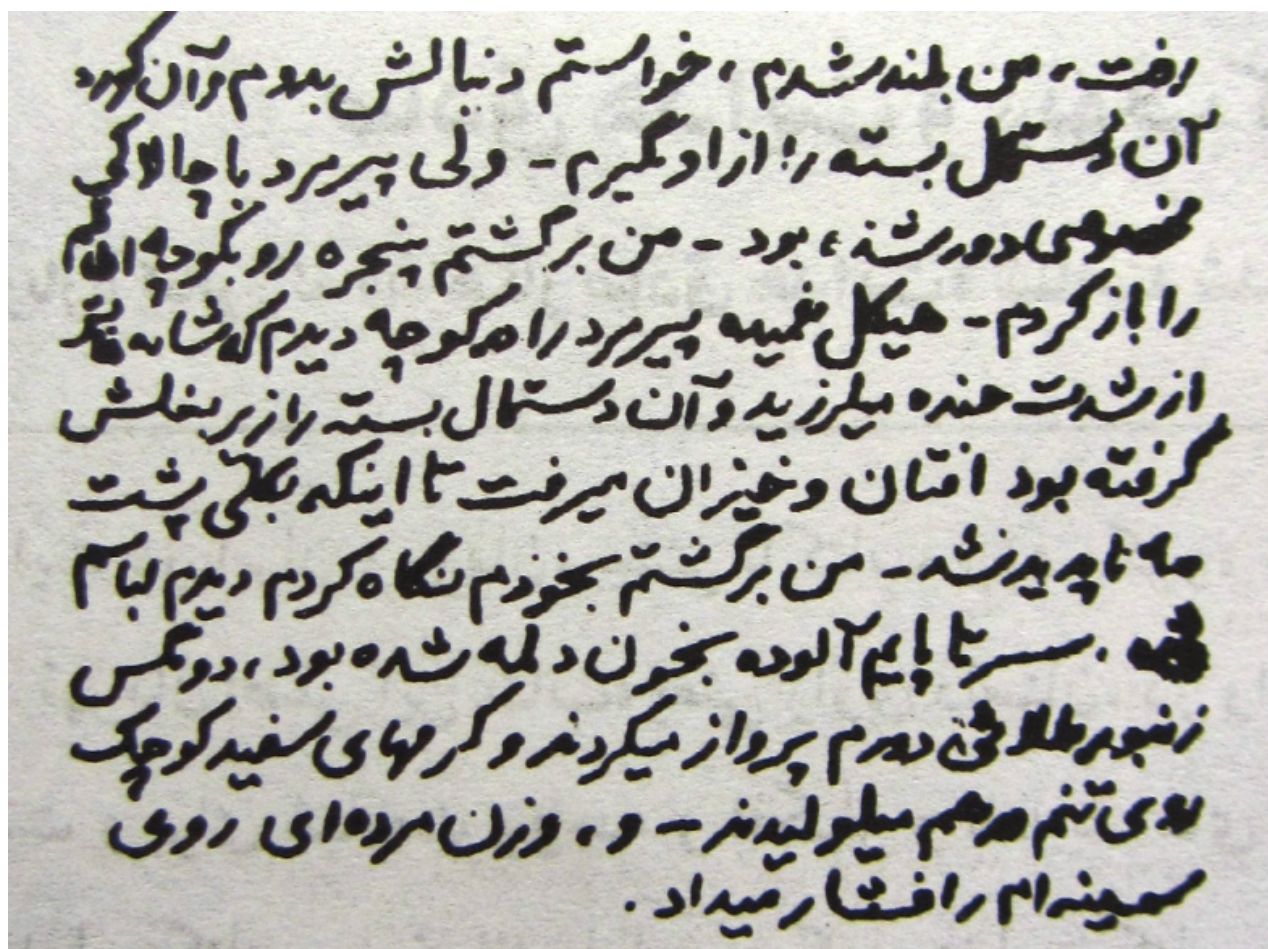 رفت، من بلند شدم، خواستم دنبالش بدوم و آن کوزه
آن دستمال بسته را از او بگیرم - ولی پیرمرد با چالاکی
مخصوصی دور شده بود - من برگشتم پنجره رو بکوچه اطاقم
را باز کردم - هیکل خمیده پیرمرد را در کوچه دیدم که شانه‌هایش
از شدت خنده میلرزید و آن دستمال بسته را زیر بغلش
گرفته بود افتان و خیزان میرفت تا اینکه بکلی پشت
مه ناپدید شد - من برگشتم بخودم نگاه کردم دیدم لباسم
، سر تا پایم آلوده بخون دلمه شده بود، دو مگس
زنبور طلائی دورم پرواز میکردند و کرمهای سفید کوچک
روی تنم در هم میلولیدند - و، وزن مرده‌ای روی
سینه‌ام را فشار میداد.